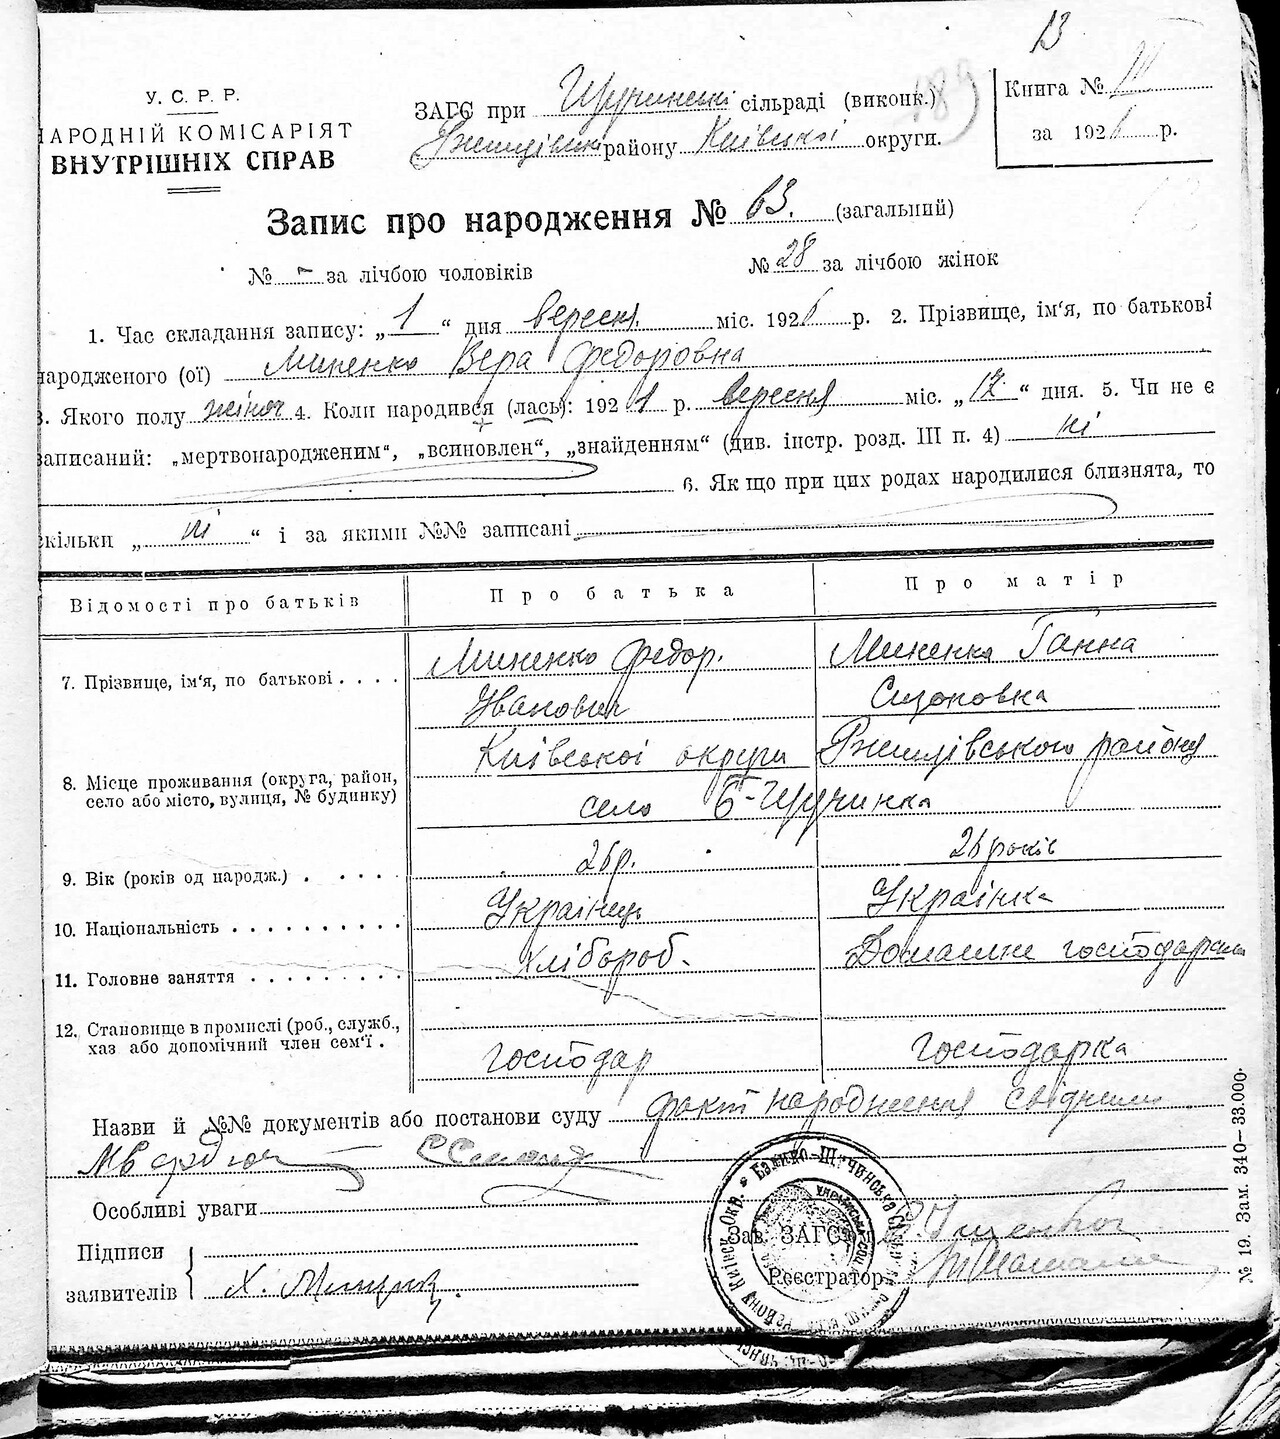 13
У. С. Р. Р.
НАРОДНІЙ КОМІСАРІЯТ
ВНУТРІШНІХ СПРАВ
ЗАГС при Щучинські сільраді (виконк.)
району Київської округи.
189
Книга № III
за 1926 р.
Запис про народження № 63. (загальний)
№ – за лічбою чоловіків № 28 за лічбою жінок
1. Час складання запису: „ 1 “ дня вересня міс. 1926 р. 2. Прізвище, ім'я, по батькові
народженого (ої) Миненко Вера Федоровна
3. Якого полу жіноч 4. Коли народився (лась): 192 р. вересня міс. „ 12 “ дня. 5. Чи не є
записаний: „мертвонародженим“, „всиновлен“, „знайденням“ (див. інстр. розд. III п. 4) ні
6. Як що при цих родах народилися близнята, то
скільки „ ні “ і за якими №№ записані
Відомості про батьків Про батька Про матір
7. Прізвище, ім'я, по батькові . . . . Миненко Федор. Миненко Ганна
Іванович Сизоновна
8. Місце проживання (округа, район, село або місто, вулиця, № будинку) Київської округи Ржищівського району
село Б-Щучинка
9. Вік (років од народж.) . . . . . 26 р. 26 років
10. Національність . . . . . . . . . . Українець Українка
11. Головне заняття . . . . . . . . . Хлібороб. Домашне
12. Становище в промислі (роб., служб., хаз або допомічний член сем'ї . господар господарка
Назви й №№ документів або постанови суду факт народження
Особливі уваги
Підписи
заявителів Х.
Зав. ЗАГС'ом
Реєстратор
№ 19. Зам. 340—33.000.